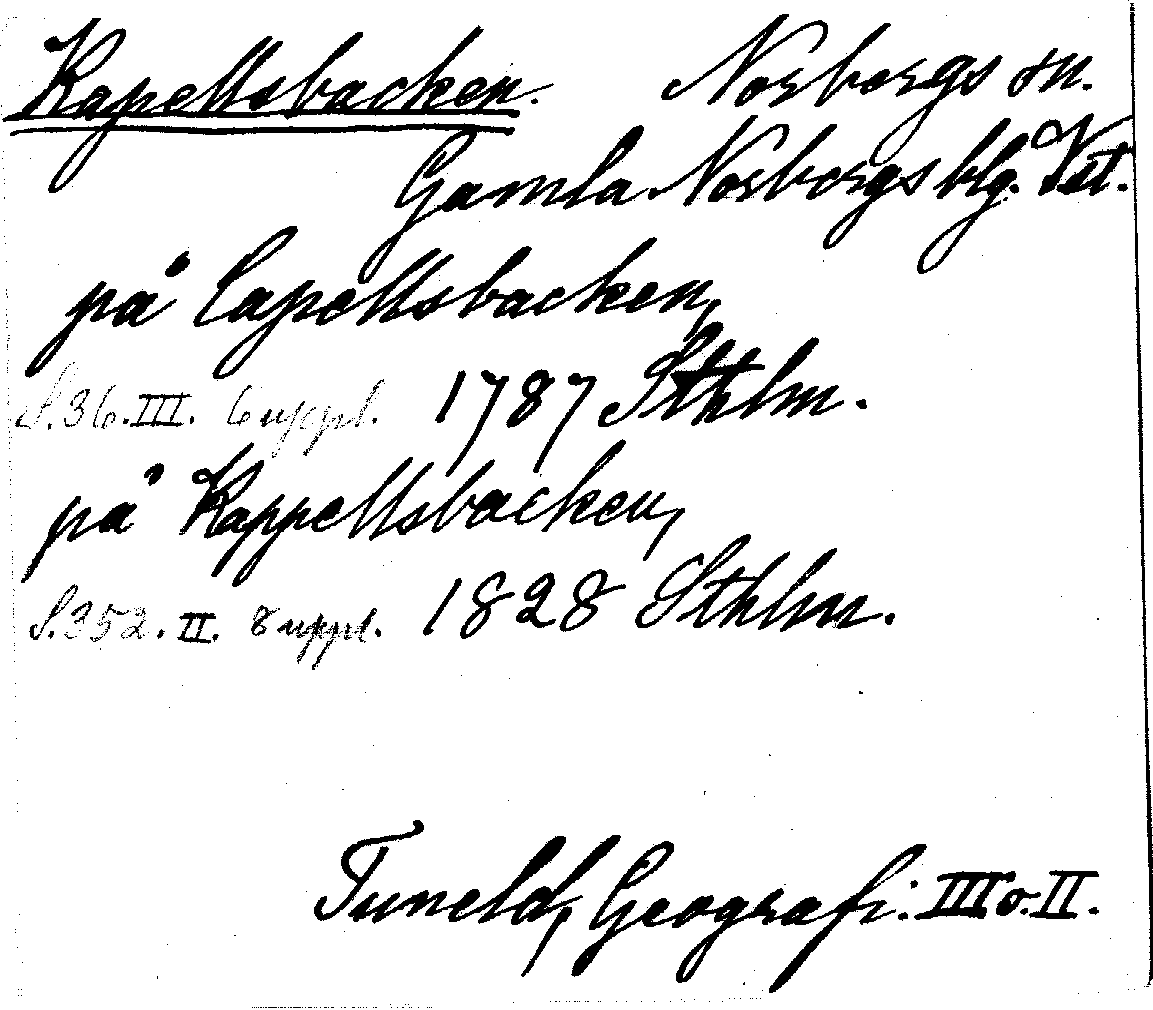 Kapellsbacken. Norbergs sn.
Gamla Norbergs blg. Vst.
på Capellsbacken,
S.36.III. 6 uppl. 1787 Sthlm.
på Kappellsbacken,
S.352. II. 8 uppl. 1828 Sthlm.
Tuneld, Geografi. III o. II.